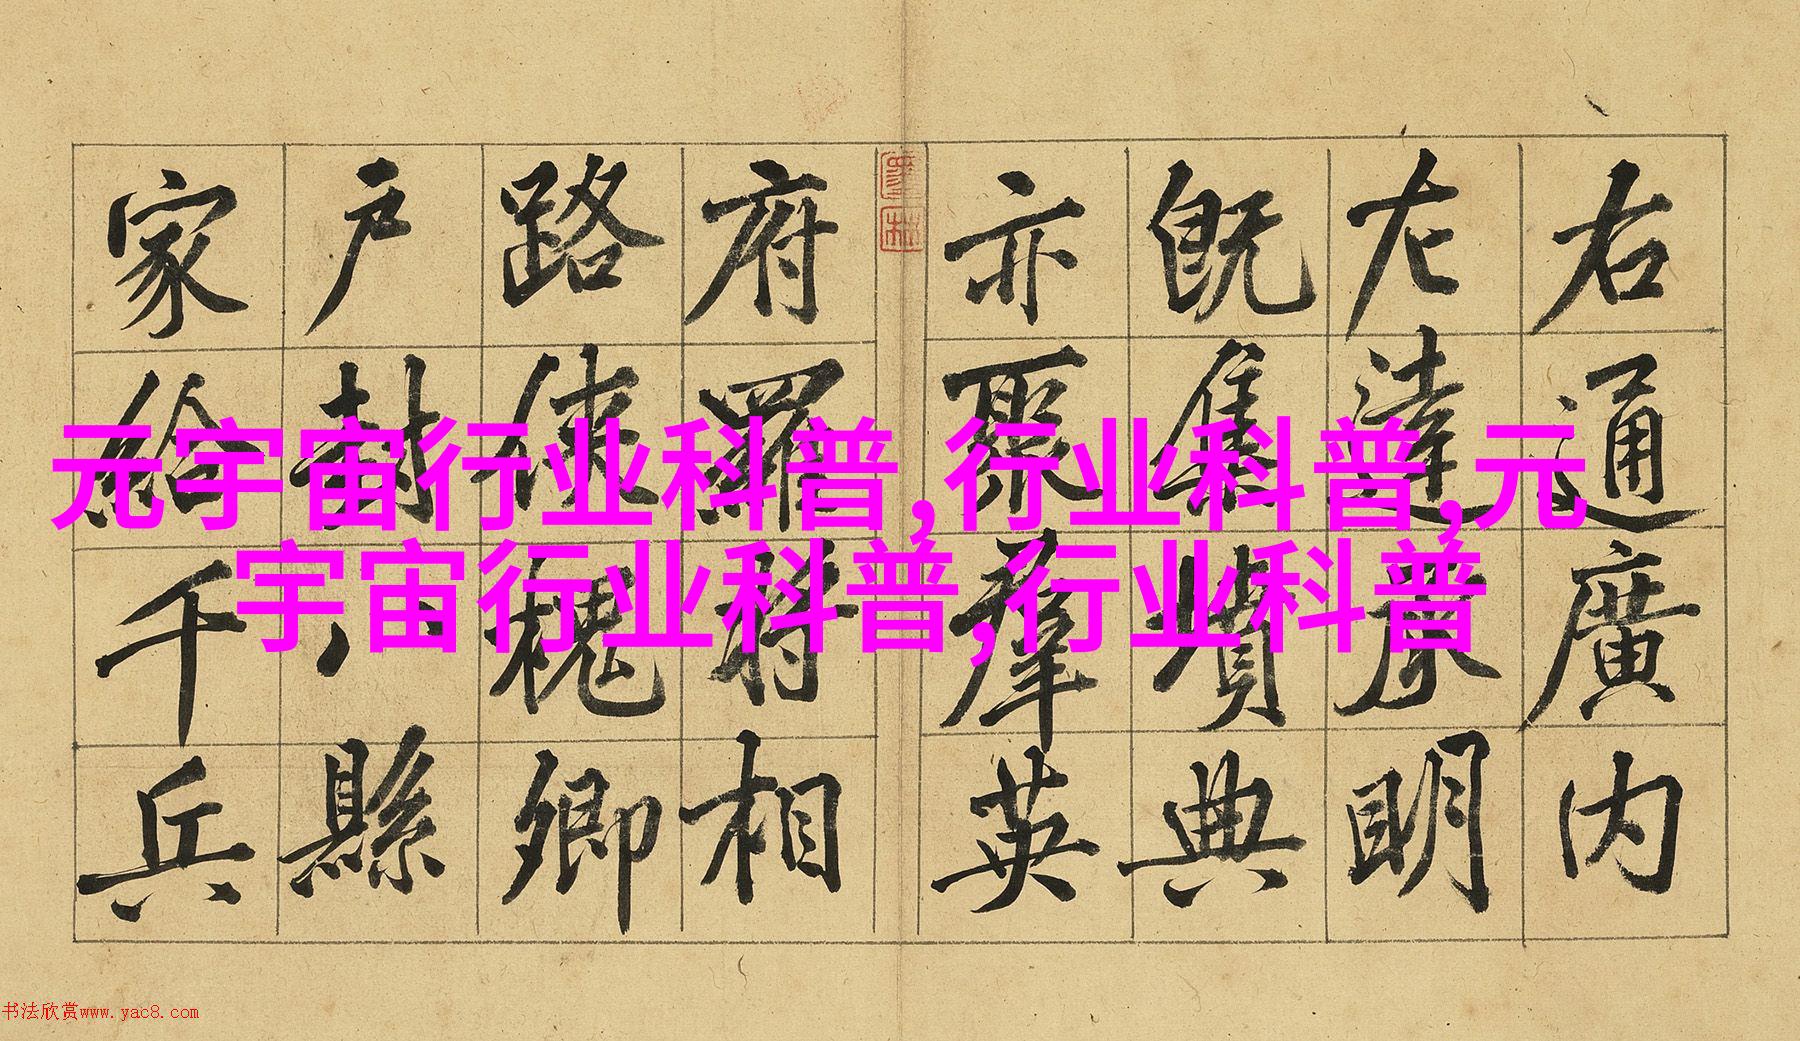 右通廣内
左達承明
既集墳典
亦聚羣英
府羅将相
路侠槐卿
户封八縣
家給千兵
元宇宙行业科普,行业科普,元
宇宙行业科普,行业科普
书法欣赏www.yac8.com